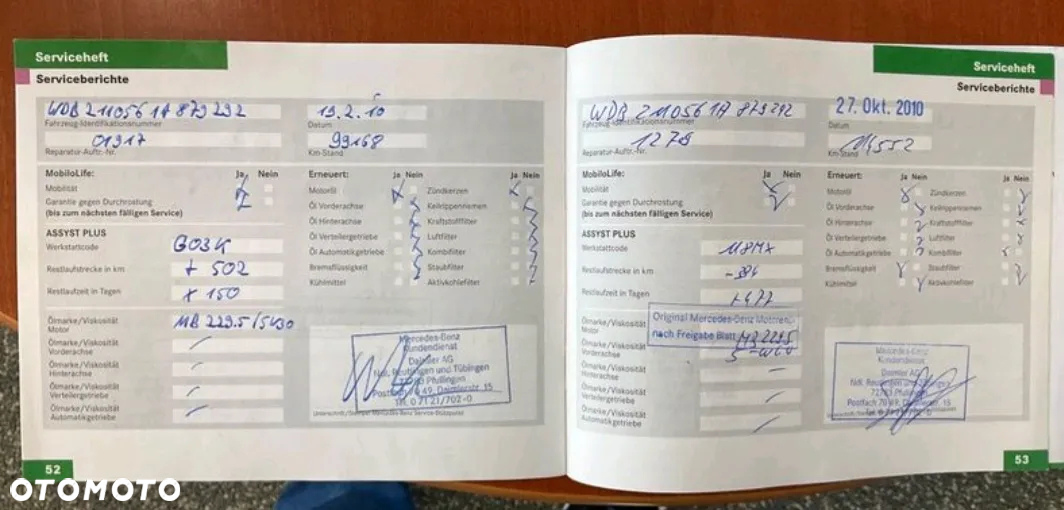 Serviceheft
Serviceberichte
WDB 211056 1A 879292 19.2.10
Fahrzeug-Identifikationsnummer Datum
01317 99168
Reparatur-Auftr.-Nr. Km-Stand
MobiloLife: Ja Nein Erneuert: Ja Nein Ja Nein
Mobilität Motoröl Zündkerzen
Garantie gegen Durchrostung Öl Vorderachse Keilrippenriemen
(bis zum nächsten fälligen Service) Öl Hinterachse Kraftstofffilter
ASSYST PLUS Öl Verteilergetriebe Luftfilter
Werkstattcode G03K Öl Automatikgetriebe Kombifilter
Restlaufstrecke in km + 502 Bremsflüssigkeit Staubfilter
Kühlmittel Aktivkohlefilter
Restlaufzeit in Tagen + 150
Ölmarke/Viskosität MB 229.5/5W30
Motor
Ölmarke/Viskosität
Vorderachse
Ölmarke/Viskosität
Hinterachse
Ölmarke/Viskosität
Verteilergetriebe
Ölmarke/Viskosität
Automatikgetriebe
Mercedes-Benz
Kundendienst
Daimler AG
Ndl. Reutlingen und Tübingen
72793 Pfullingen
Postfach 70 49, Daimlerstr. 15
Tel. 0 71 21/702-0
52
Serviceheft
Serviceberichte
WDB 211056 1A 879292 27. Okt. 2010
Fahrzeug-Identifikationsnummer Datum
1278 114552
Reparatur-Auftr.-Nr. Km-Stand
MobiloLife: Ja Nein Erneuert: Ja Nein Ja Nein
Mobilität Motoröl Zündkerzen
Garantie gegen Durchrostung Öl Vorderachse Keilrippenriemen
(bis zum nächsten fälligen Service) Öl Hinterachse Kraftstofffilter
ASSYST PLUS Öl Verteilergetriebe Luftfilter
Werkstattcode Öl Automatikgetriebe Kombifilter
Restlaufstrecke in km Bremsflüssigkeit Staubfilter
Kühlmittel Aktivkohlefilter
Restlaufzeit in Tagen +477
Ölmarke/Viskosität
Motor
Original Mercedes-Benz Motorenöl
nach Freigabe Blatt MB 229.5
Ölmarke/Viskosität
Vorderachse
Ölmarke/Viskosität
Hinterachse
Ölmarke/Viskosität
Verteilergetriebe
Ölmarke/Viskosität
Automatikgetriebe
Mercedes-Benz
Kundendienst
Daimler AG
Ndl. Reutlingen und Tübingen
72793 Pfullingen
Postfach 70 49, Daimlerstr. 15
53
OTOMOTO